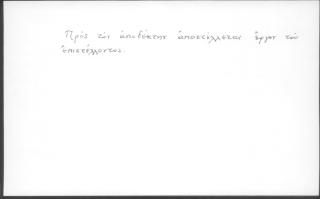 Πρὸς τὸν ἀποδέκτην ἀποστέλλεται ἔργον τοῦ
ἐπιστέλλοντος.